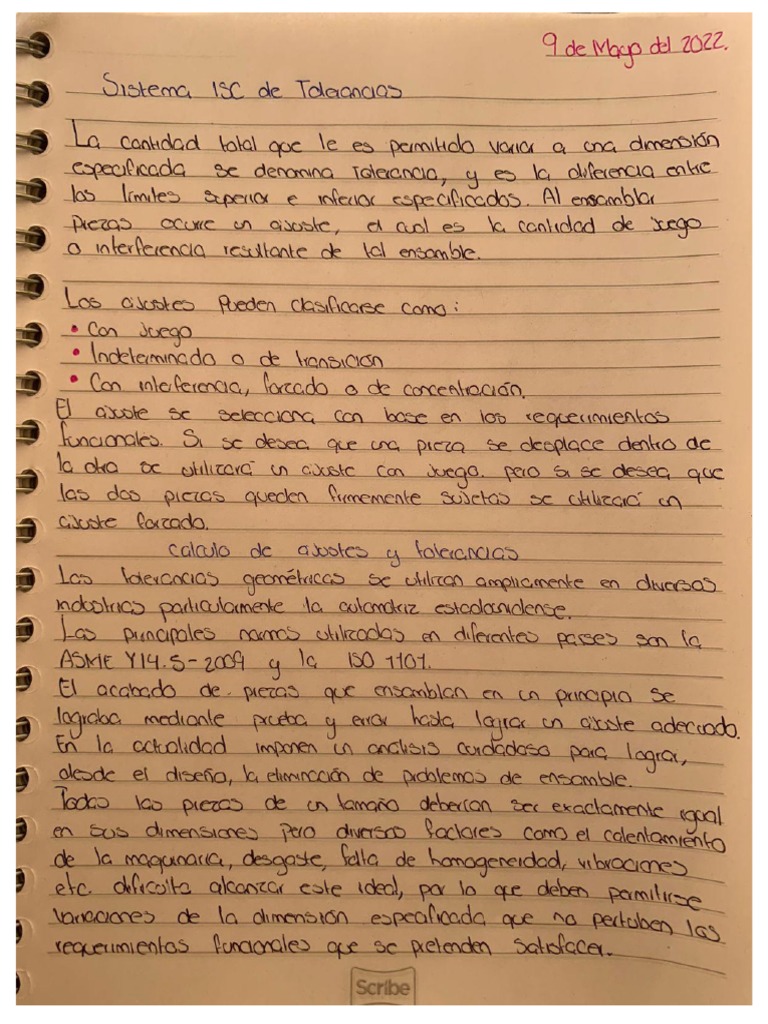 9 de Mayo del 2022.
Sistema ISC de Tolerancias
La cantidad total que le es permitido variar a una dimensión
especificada se denomina Tolerancia, y es la diferencia entre
los límites superior e inferior especificados. Al ensamblar
piezas ocurre un ajuste, el cual es la cantidad de juego
o interferencia resultante de tal ensamble.
Los ajustes pueden clasificarse como:
• Con juego
• Indeterminado o de transición
• Con interferencia, forzado o de concentración.
El ajuste se selecciona con base en los requerimientos
funcionales. Si se desea que una pieza se desplace dentro de
la otra se utilizará un ajuste con juego. pero si se desea que
las dos piezas queden firmemente sujetas se utilizará un
ajuste forzado.
calculo de ajustes y tolerancias
Las tolerancias geométricas se utilizan ampliamente en diversas
industrias particularmente la automotriz estadounidense.
Las principales normas utilizadas en diferentes paises son la
ASME Y14.5-2009 y la ISO 1101.
El acabado de piezas que ensamblan en un principio se
lograba mediante prueba y error hasta lograr un ajuste adecuado.
En la actualidad imponen un análisis cuidadoso para lograr,
desde el diseño, la eliminación de problemas de ensamble.
Todas las piezas de un tamaño deberían ser exactamente igual
en sus dimensiones pero diversos factores como el calentamiento
de la maquinaria, desgaste, falta de homogeneidad, vibraciones
etc. dificulta alcanzar este ideal, por lo que deben permitirse
variaciones de la dimensión especificada que no pertuben las
requerimientos funcionales que se pretenden satisfacer.
Scribe